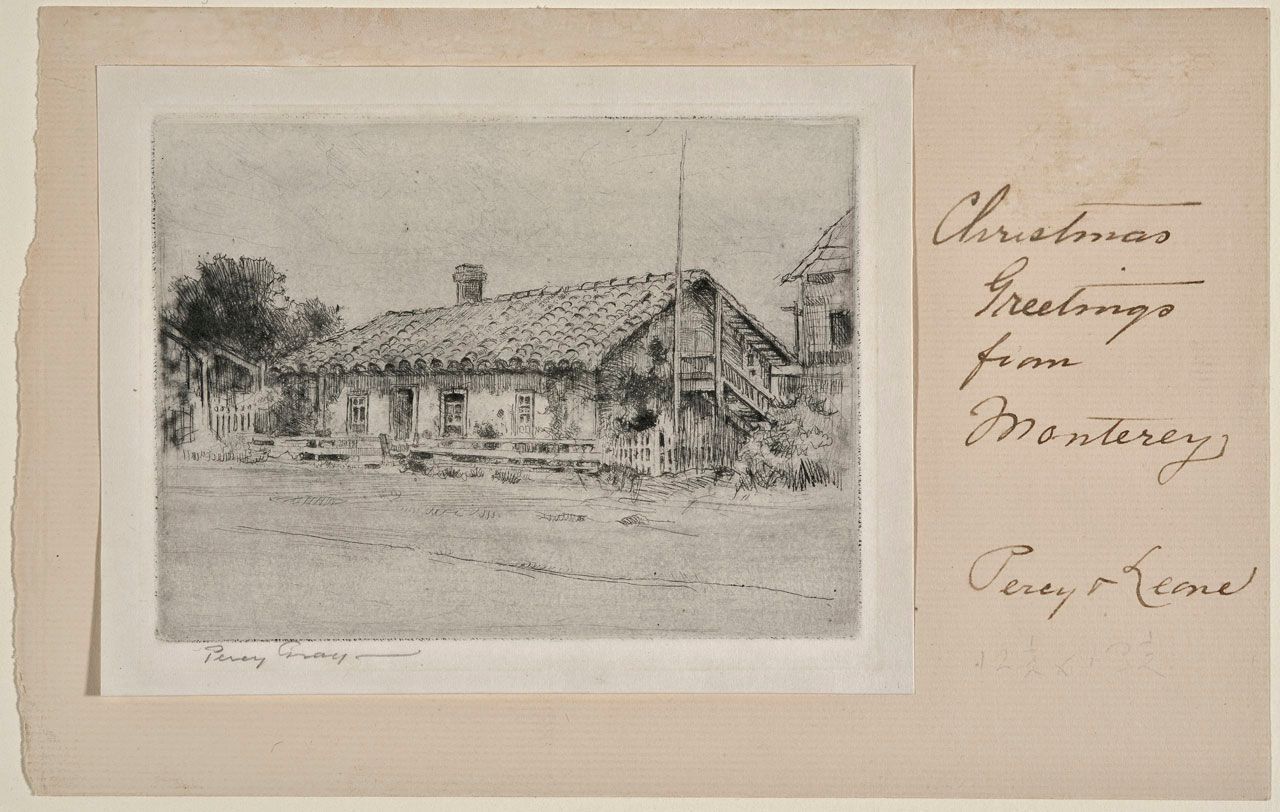 Christmas
Greetings
from
Monterey
Percy & Leone
Percy Gray